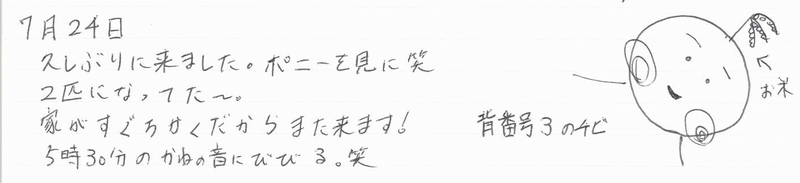 7月24日
久しぶりに来ました。ポニーを見に笑
2匹になってた〜。
家がすぐちかくだからまた来ます!
5時30分のかねの音にびびる。笑
背番号3のチビ
お米